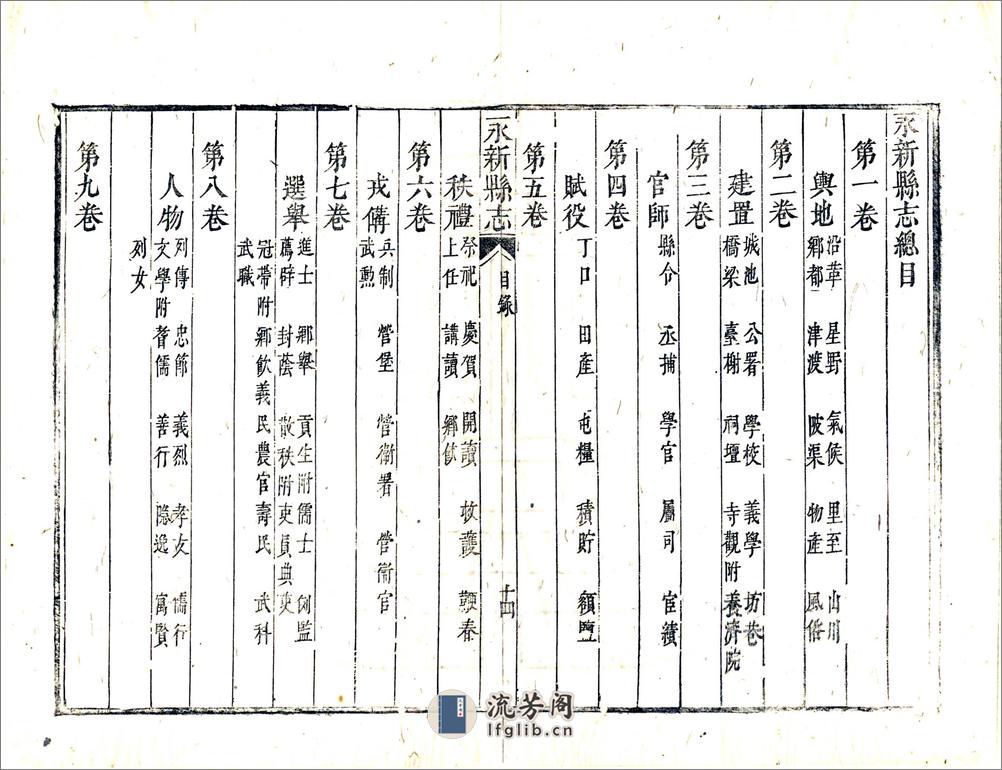 永新縣志總目
第一卷
輿地
沿革 星野 氣候 里至 山川
鄉都 津渡 陂渠 物產 風俗
第二卷
建置
城池 公署 學校 義學 坊巷
橋梁 臺榭 祠壇 寺觀附養濟院
第三卷
官師
縣令 丞捕 學官 屬司 宦績
第四卷
賦役
丁口 田產 屯糧 積貯 額鹽
第五卷
永新縣志
目錄
十四
秩禮
祭祀 慶賀 開讀 救護 鞭春
上任 講讀 鄉飲
第六卷
戎備
兵制 營堡 營衞署 管衞官
武勳
第七卷
選舉
進士 鄉舉 貢生附儒士 例監
薦辟 封蔭 散秩附吏員典吏
冠帶附鄉飲義民農官壽民 武科
武職
第八卷
人物
列傳 忠節 義烈 孝友 儒行
文學附耆儒 善行 隱逸 寓賢
列女
第九卷
流芳阁
lfglib.cn